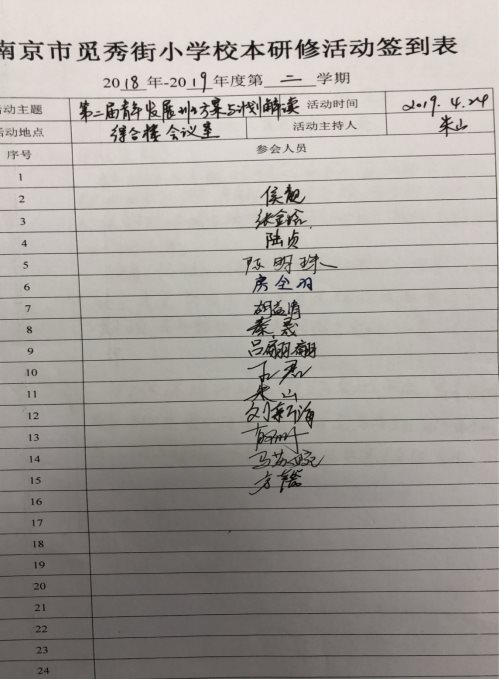 南京市觅秀街小学校本研修活动签到表
2018年-2019年度第二学期
活动主题 第二届青年发展 方案与计划解读 活动时间 2019.4.24
活动地点 综合楼会议室 活动主持人 朱山
序号 参会人员
1
2 侯靓
3 张金玲
4 陆贞
5 陈明珠
6 房全羽
7 胡益清
8 秦晟
9 吕翩翩
10
11 朱山
12 刘
13
14 马苏婉
15 方蕾
16
17
18
19
20
21
22
23
24